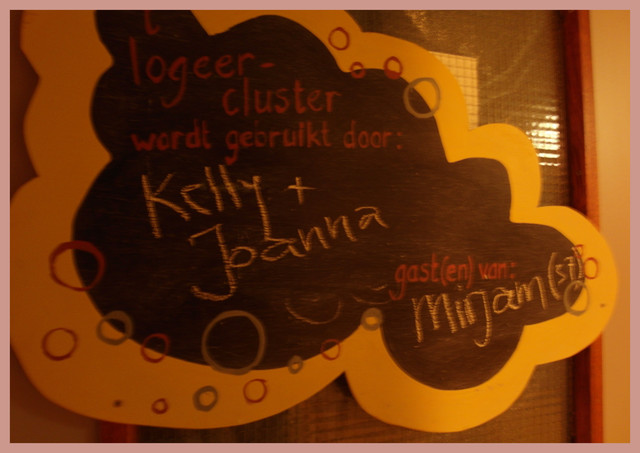 logeer-
cluster
wordt gebruikt door:
Kelly +
Joanna
gast(en) van:
Mirjam (s7)